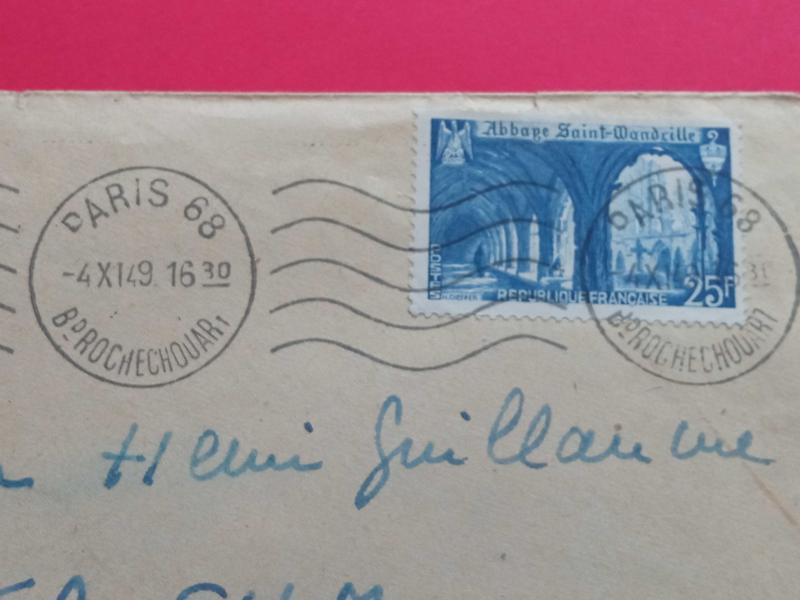 Abbaye Saint-Wandrille
PARIS 68
-4 XI 49 16 30
Bᴰ ROCHECHOUART
PARIS 68
-4 XI 49 16 30
Bᴰ ROCHECHOUART
REPUBLIQUE FRANÇAISE
25F
Henri Guillaume